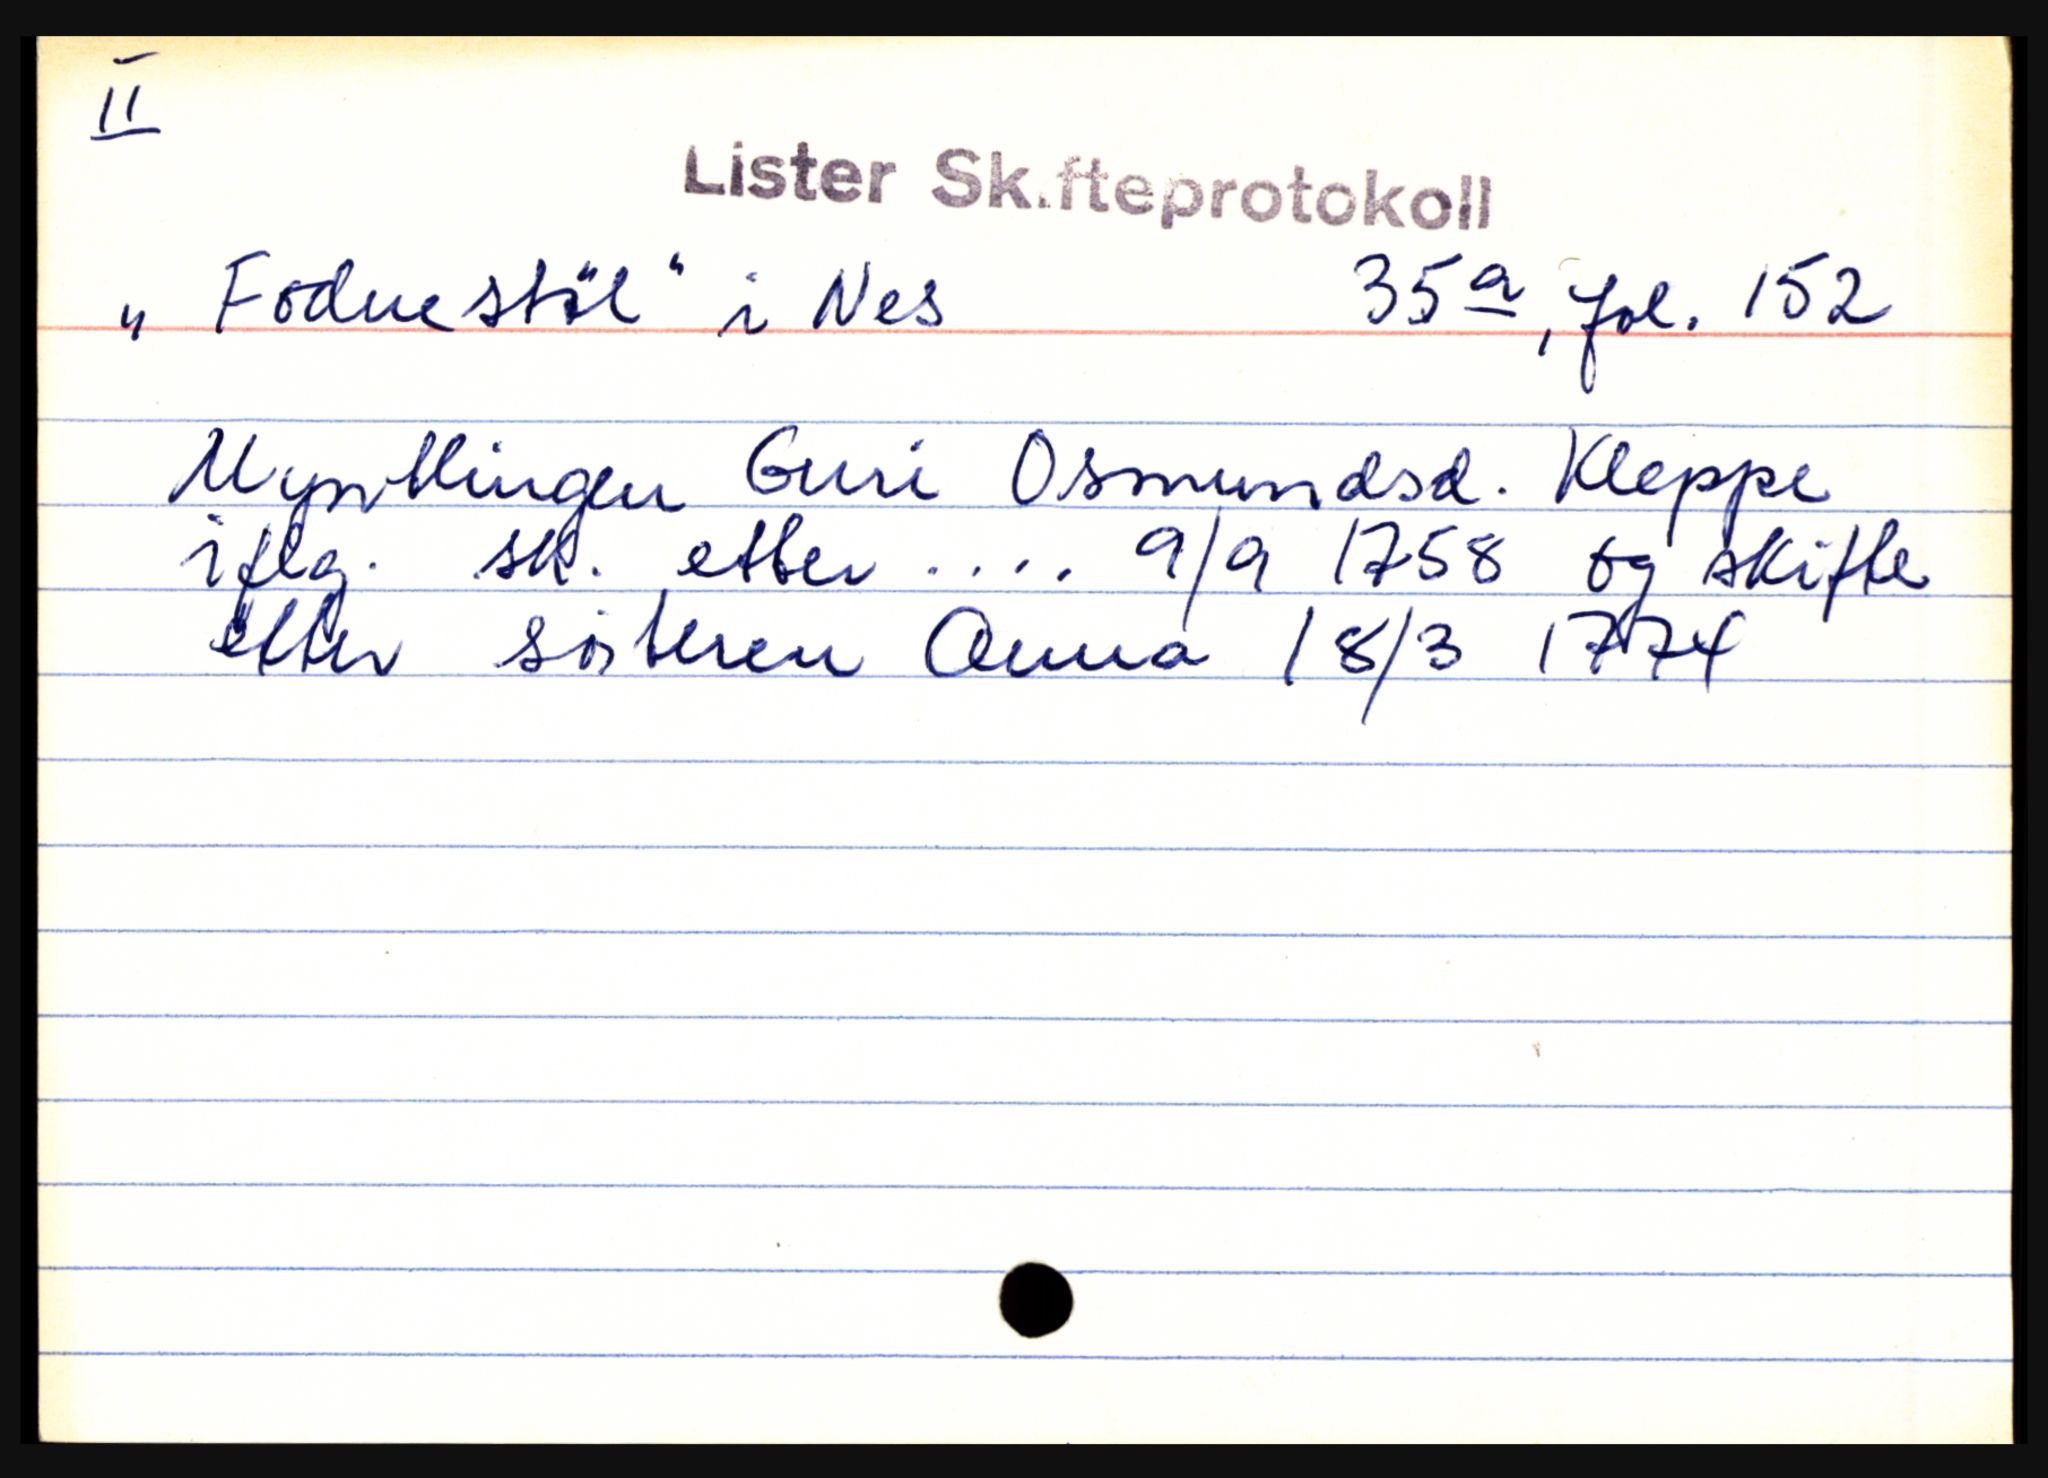 II
Lister Skifteprotokoll
„Fodnestøl“ i Nes 35a, fol. 152
Myndtlingen Guri Osmundsd. Kleppe
iflg. sk. etter .... 9/9 1758 og skifte
etter søsteren Anna 18/3 1774